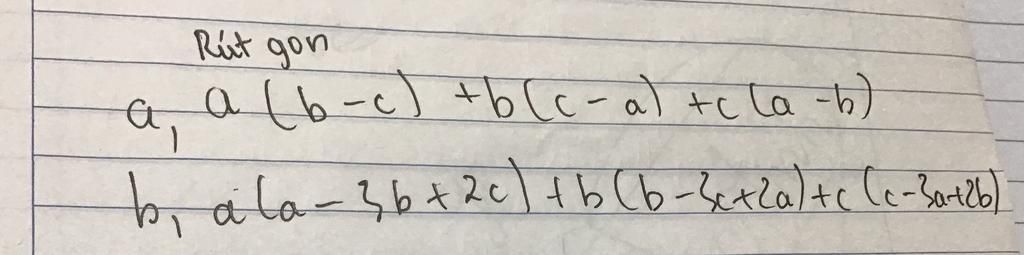 Rút gọn
a, a(b-c) +b(c-a) +c(a-b)
b, a(a-3b+2c)+b(b-3c+2a)+c(c-3a+2b)